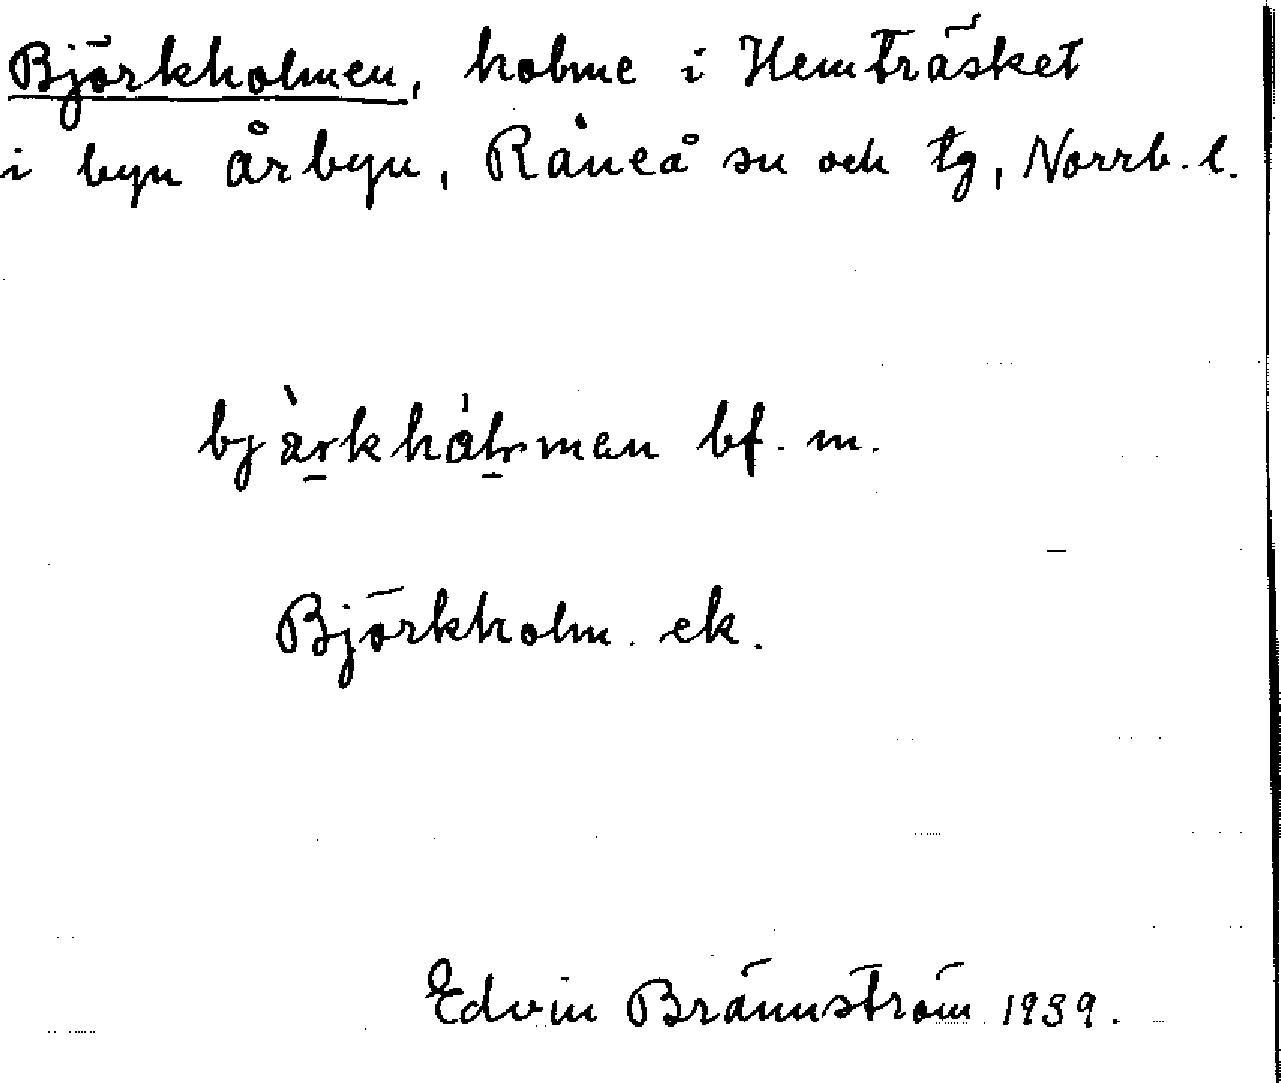 Björkholmen, holme i Hemträsket
i byn Årbyn, Råneå sn och tg, Norrb. l.
bf. m.
Björkholm. ek.
Edvin Brännström 1939.